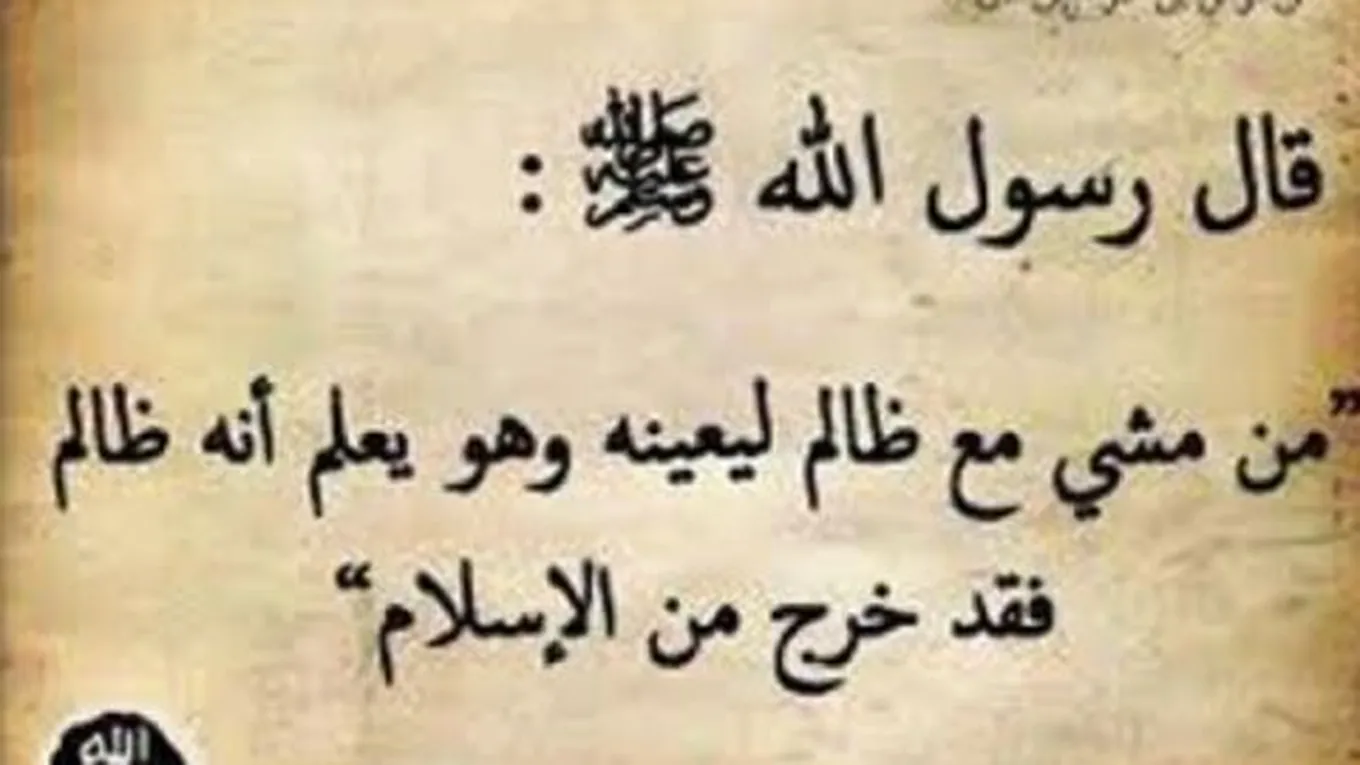 قال رسول الله ﷺ :
”من مشي مع ظالم ليعينه وهو يعلم أنه ظالم
فقد خرج من الإسلام“
الله